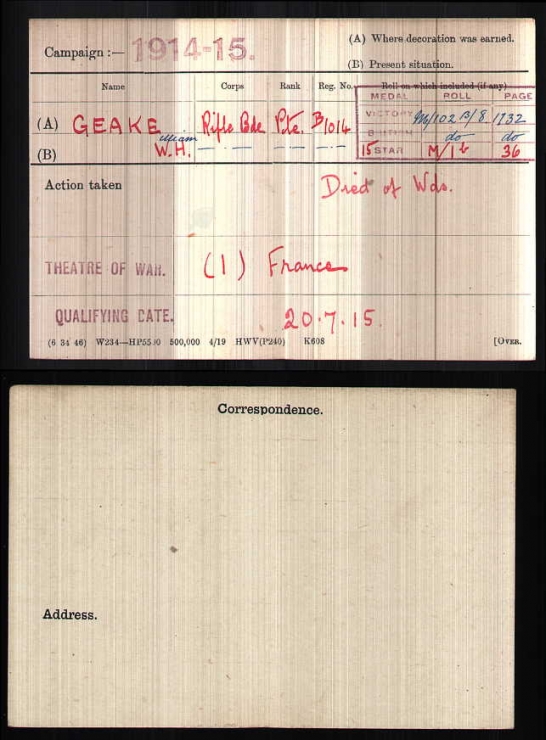 (A) Where decoration was earned.
Campaign :— 1914-15.
(B) Present situation.
Name Corps Rank Reg. No. Roll on which included (if any)
MEDAL ROLL PAGE
(A) GEAKE Rifle Bde Pte. B/1014 VICTORY M/102 B/8 1732
William BRITISH do do
(B) W.H. — " — — " — — " — — " — 15 STAR M/1 b 36
Action taken Died of Wds.
THEATRE OF WAR. (1) France
QUALIFYING DATE. 20.7.15.
(6 34 46) W234—HP5530 500,000 4/19 HWV(P240) K608 [OVER.
Correspondence.
Address.